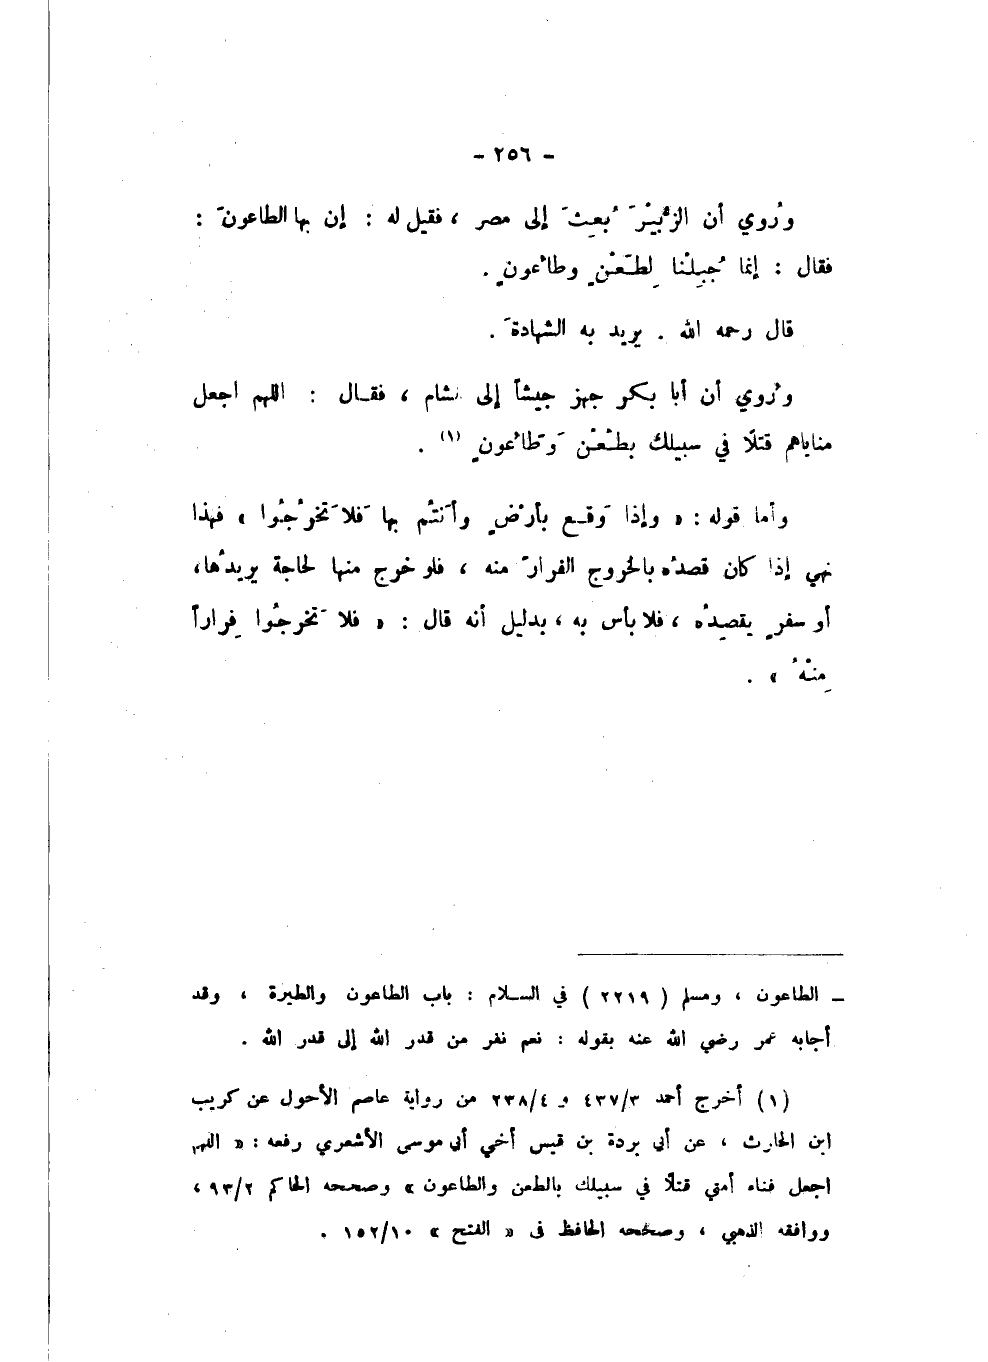 - ٢٥٦ -
ورُوي أن الزُّبيْرَ بُعِثَ إلى مصر ، فقيل له : إن بها الطاعونَ :
فقال : إنما جُبِلْنا لِطَعْنٍ وطاعُونٍ .
قال رحمه الله . يريد به الشهادةَ .
ورُوي أن أبا بكر جهز جيشاً إلى الشام ، فقال : اللهم اجعل
مناياهم قتلًا في سبيلك بطَعْنٍ وَطاعُونٍ (١) .
وأما قوله : « وإذا وَقع بأرْضٍ وأَنتُم بها فَلا تَخرُجُوا » فهذا
نهي إذا كان قصدُه بالخروج الفرارَ منه ، فلو خرج منها لحاجة يريدُها،
أو سفرٍ يقصِدُه ، فلا بأس به ، بدليل أنه قال : « فلا تَخرجُوا فِراراً
مِنْهُ » .
ــ الطاعون ، ومسلم ( ٢٢١٩ ) في السلام : باب الطاعون والطيرة ، وقد
أجابه عمر رضي الله عنه بقوله : نعم نفر من قدر الله إلى قدر الله .
(١) أخرج أحمد ٤٣٧/٣ و ٢٣٨/٤ من رواية عاصم الأحول عن كريب
ابن الحارث ، عن أبي بردة بن قيس أخي أبي موسى الأشعري رفعه : « اللهم
اجعل فناء أمتي قتلًا في سبيلك بالطعن والطاعون » وصححه الحاكم ٩٣/٢ ،
ووافقه الذهبي ، وصححه الحافظ في « الفتح » ١٥٢/١٠ .